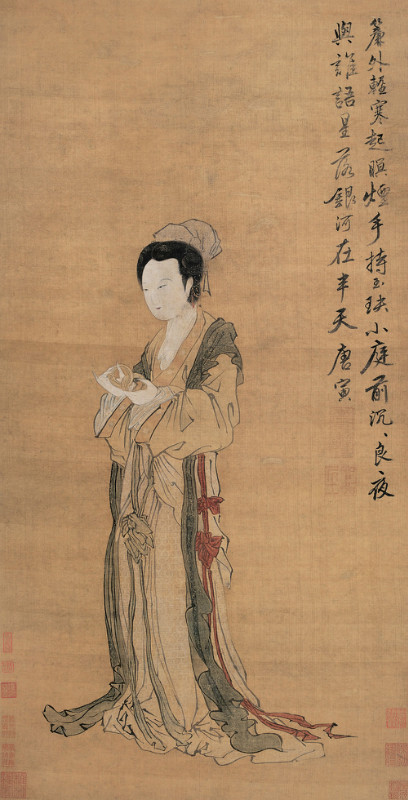 簾外輕寒起暝煙手持玉玦小庭前沉、良夜
與誰語星落銀河在半天唐寅